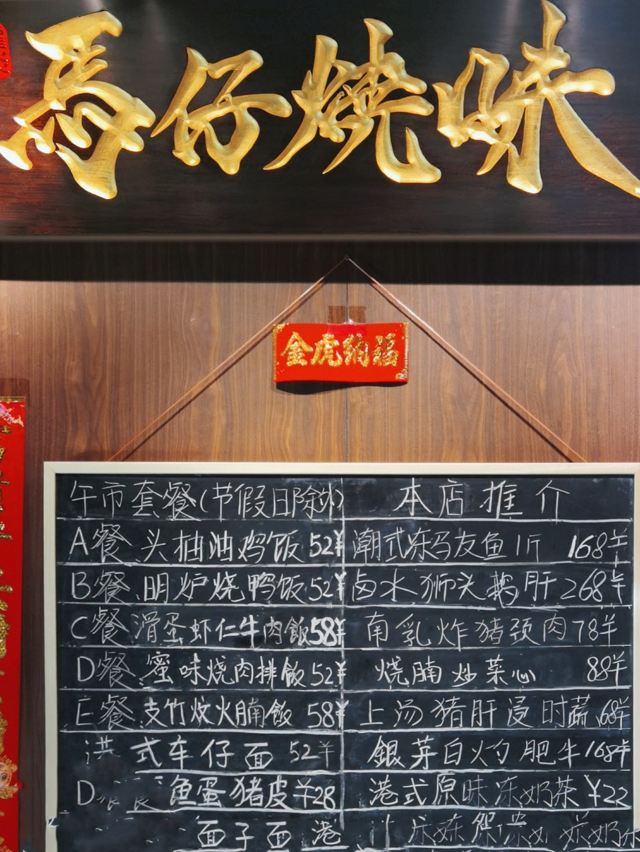 馬仔燒味
金虎納福
午市套餐(节假日除外)
A餐 头抽油鸡饭 52¥
B餐 明炉烧鸭饭 52¥
C餐 滑蛋虾仁牛肉飯 58¥
D餐 蜜味烧肉排飯 52¥
E餐 支竹炆火腩飯 58¥
式车仔面 52¥
D 鱼蛋猪皮 ¥28
面子面 港
本店推介
潮式冻马友鱼1斤 168羊
卤水狮头鹅肝 268羊
南乳炸猪颈肉 78羊
烧腩炒菜心 88羊
上汤猪肝浸时蔬 68羊
銀芽白灼肥牛 168羊
港式原味冻奶茶 ¥22